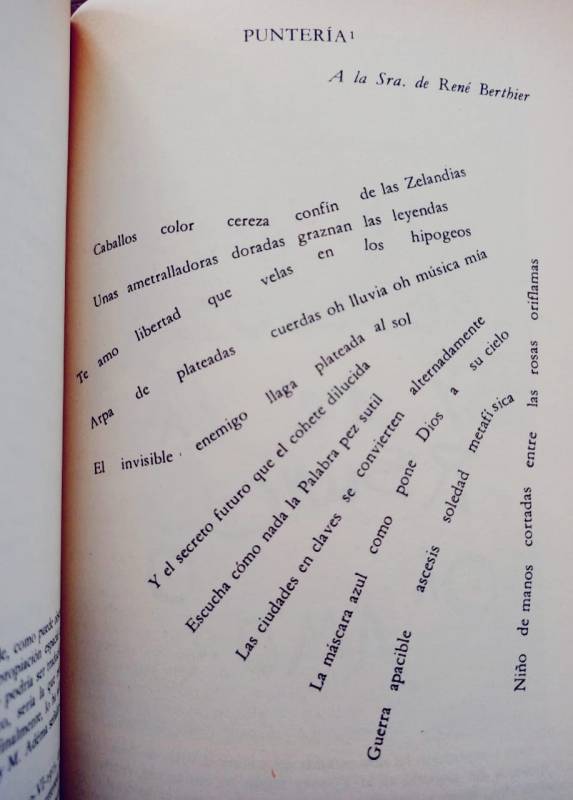 PUNTERÍA¹
A la Sra. de René Berthier
Caballos color cereza confín de las Zelandias
Unas ametralladoras doradas graznan las leyendas
Te amo libertad que velas en los hipogeos
Arpa de plateadas cuerdas oh lluvia oh música mía
El invisible enemigo llaga plateada al sol
Y el secreto futuro que el cohete dilucida
Escucha cómo nada la Palabra pez sutil
Las ciudades en claves se convierten alternadamente
La máscara azul como pone Dios a su cielo
Guerra apacible ascesis soledad metafísica
Niño de manos cortadas entre las rosas oriflamas
como puede
podría ser
sería la que
M. Adéma